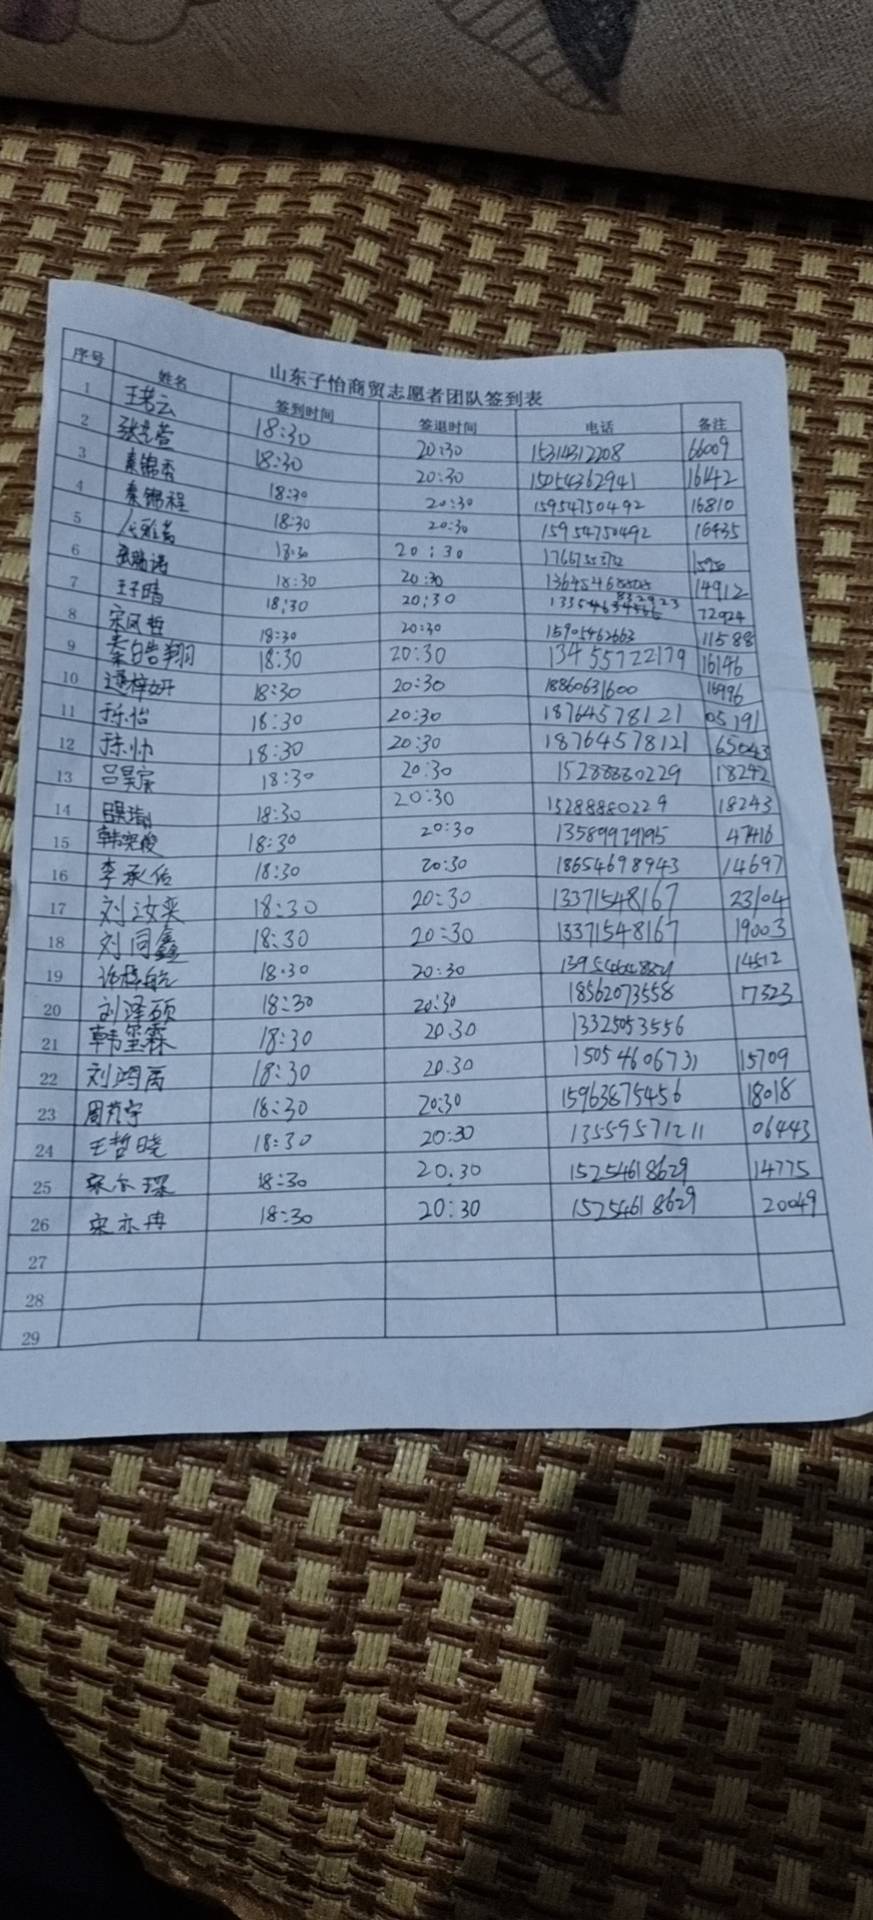 山东子怡商贸志愿者团队签到表
序号 姓名 签到时间 签退时间 电话 备注
1 王若云 18:30 20:30 15314312208 66009
2 张 萱 18:30 20:30 15054362941 16142
3 秦锦秀 18:30 20:30 15954750492 16810
4 秦锦程 18:30 20:30 15954750492 16435
5 18:30 20:30
6 18:30 20:30 14912
7 王子晴 18:30 20:30 72924
8 宋凤哲 18:30 20:30 15905462663 11588
9 秦皓翔 18:30 20:30 13455722179 16146
10 梓妍 18:30 20:30 18860631600 16996
11 孙怡 18:30 20:30 18764578121 05191
12 孙帅 18:30 20:30 18764578121 65043
13 吕昊宸 18:30 20:30 15288880229 18242
14 18:30 20:30 15288880229 18243
15 韩奕俊 18:30 20:30 13589979195 47416
16 李承佑 18:30 20:30 18654698943 14697
17 刘汶奕 18:30 20:30 13371548167 23104
18 刘同鑫 18:30 20:30 13371548167 19003
19 18:30 20:30 14512
20 刘泽硕 18:30 20:30 18562073558 17323
21 韩玺霖 18:30 20:30 13325053556
22 刘鸿禹 18:30 20:30 15054606731 15709
23 周芃宇 18:30 20:30 15963875456 18018
24 王哲晓 18:30 20:30 13559571211 06443
25 宋尔琛 18:30 20:30 15254618629 14775
26 宋亦冉 18:30 20:30 15254618629 20049
27
28
29